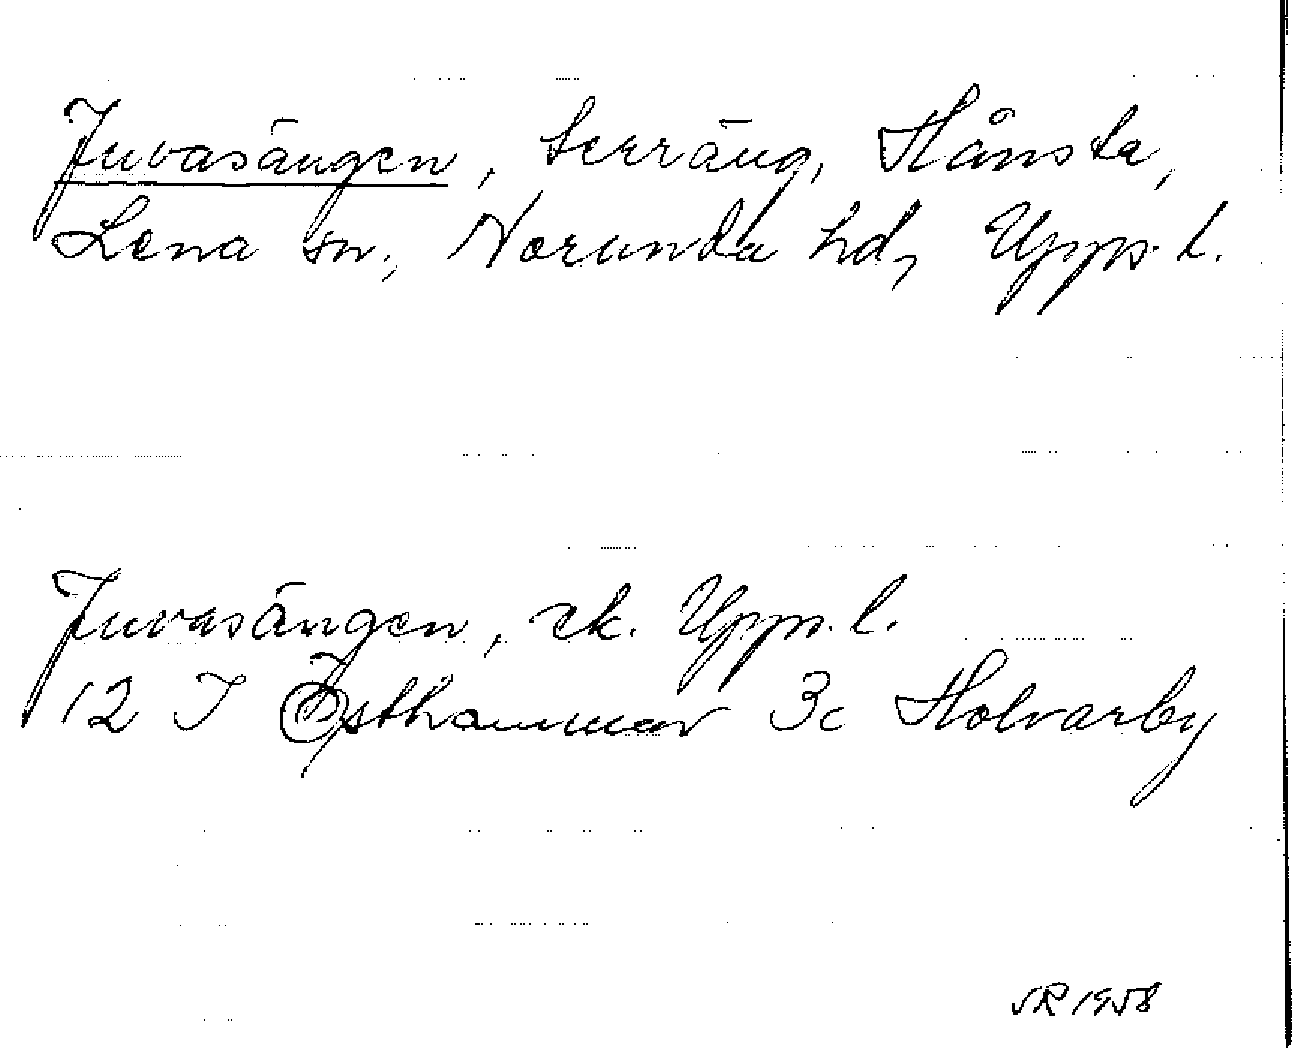 Juvasängen, terräng, Hånsta,
Lena sn, Norunda hd, Upps. l.
Juvasängen, ek. Upps. l.
12 I Östhammar 3c Holvarby
1958